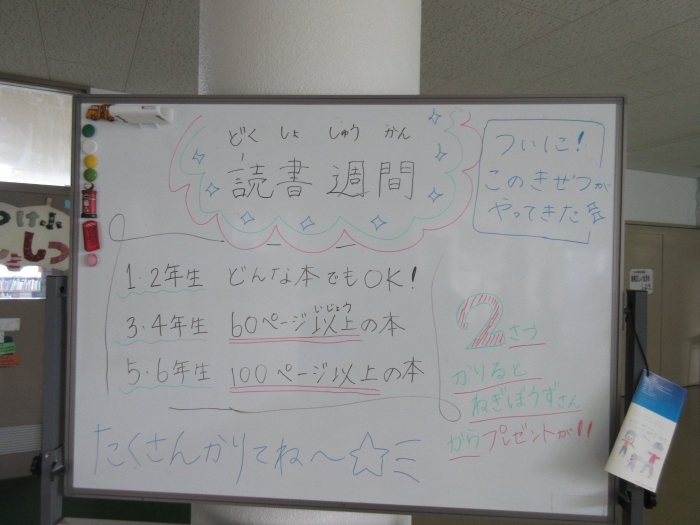 どく しょ しゅう かん
読書週間
ついに!
このきせつが
やってきた
1・2年生 どんな本でもOK!
いじょう
3・4年生 60ページ以上の本
5・6年生 100ページ以上の本
2さつ
かりると
ねぎぼうずさん
からプレゼントが!!
たくさんかりてね〜☆